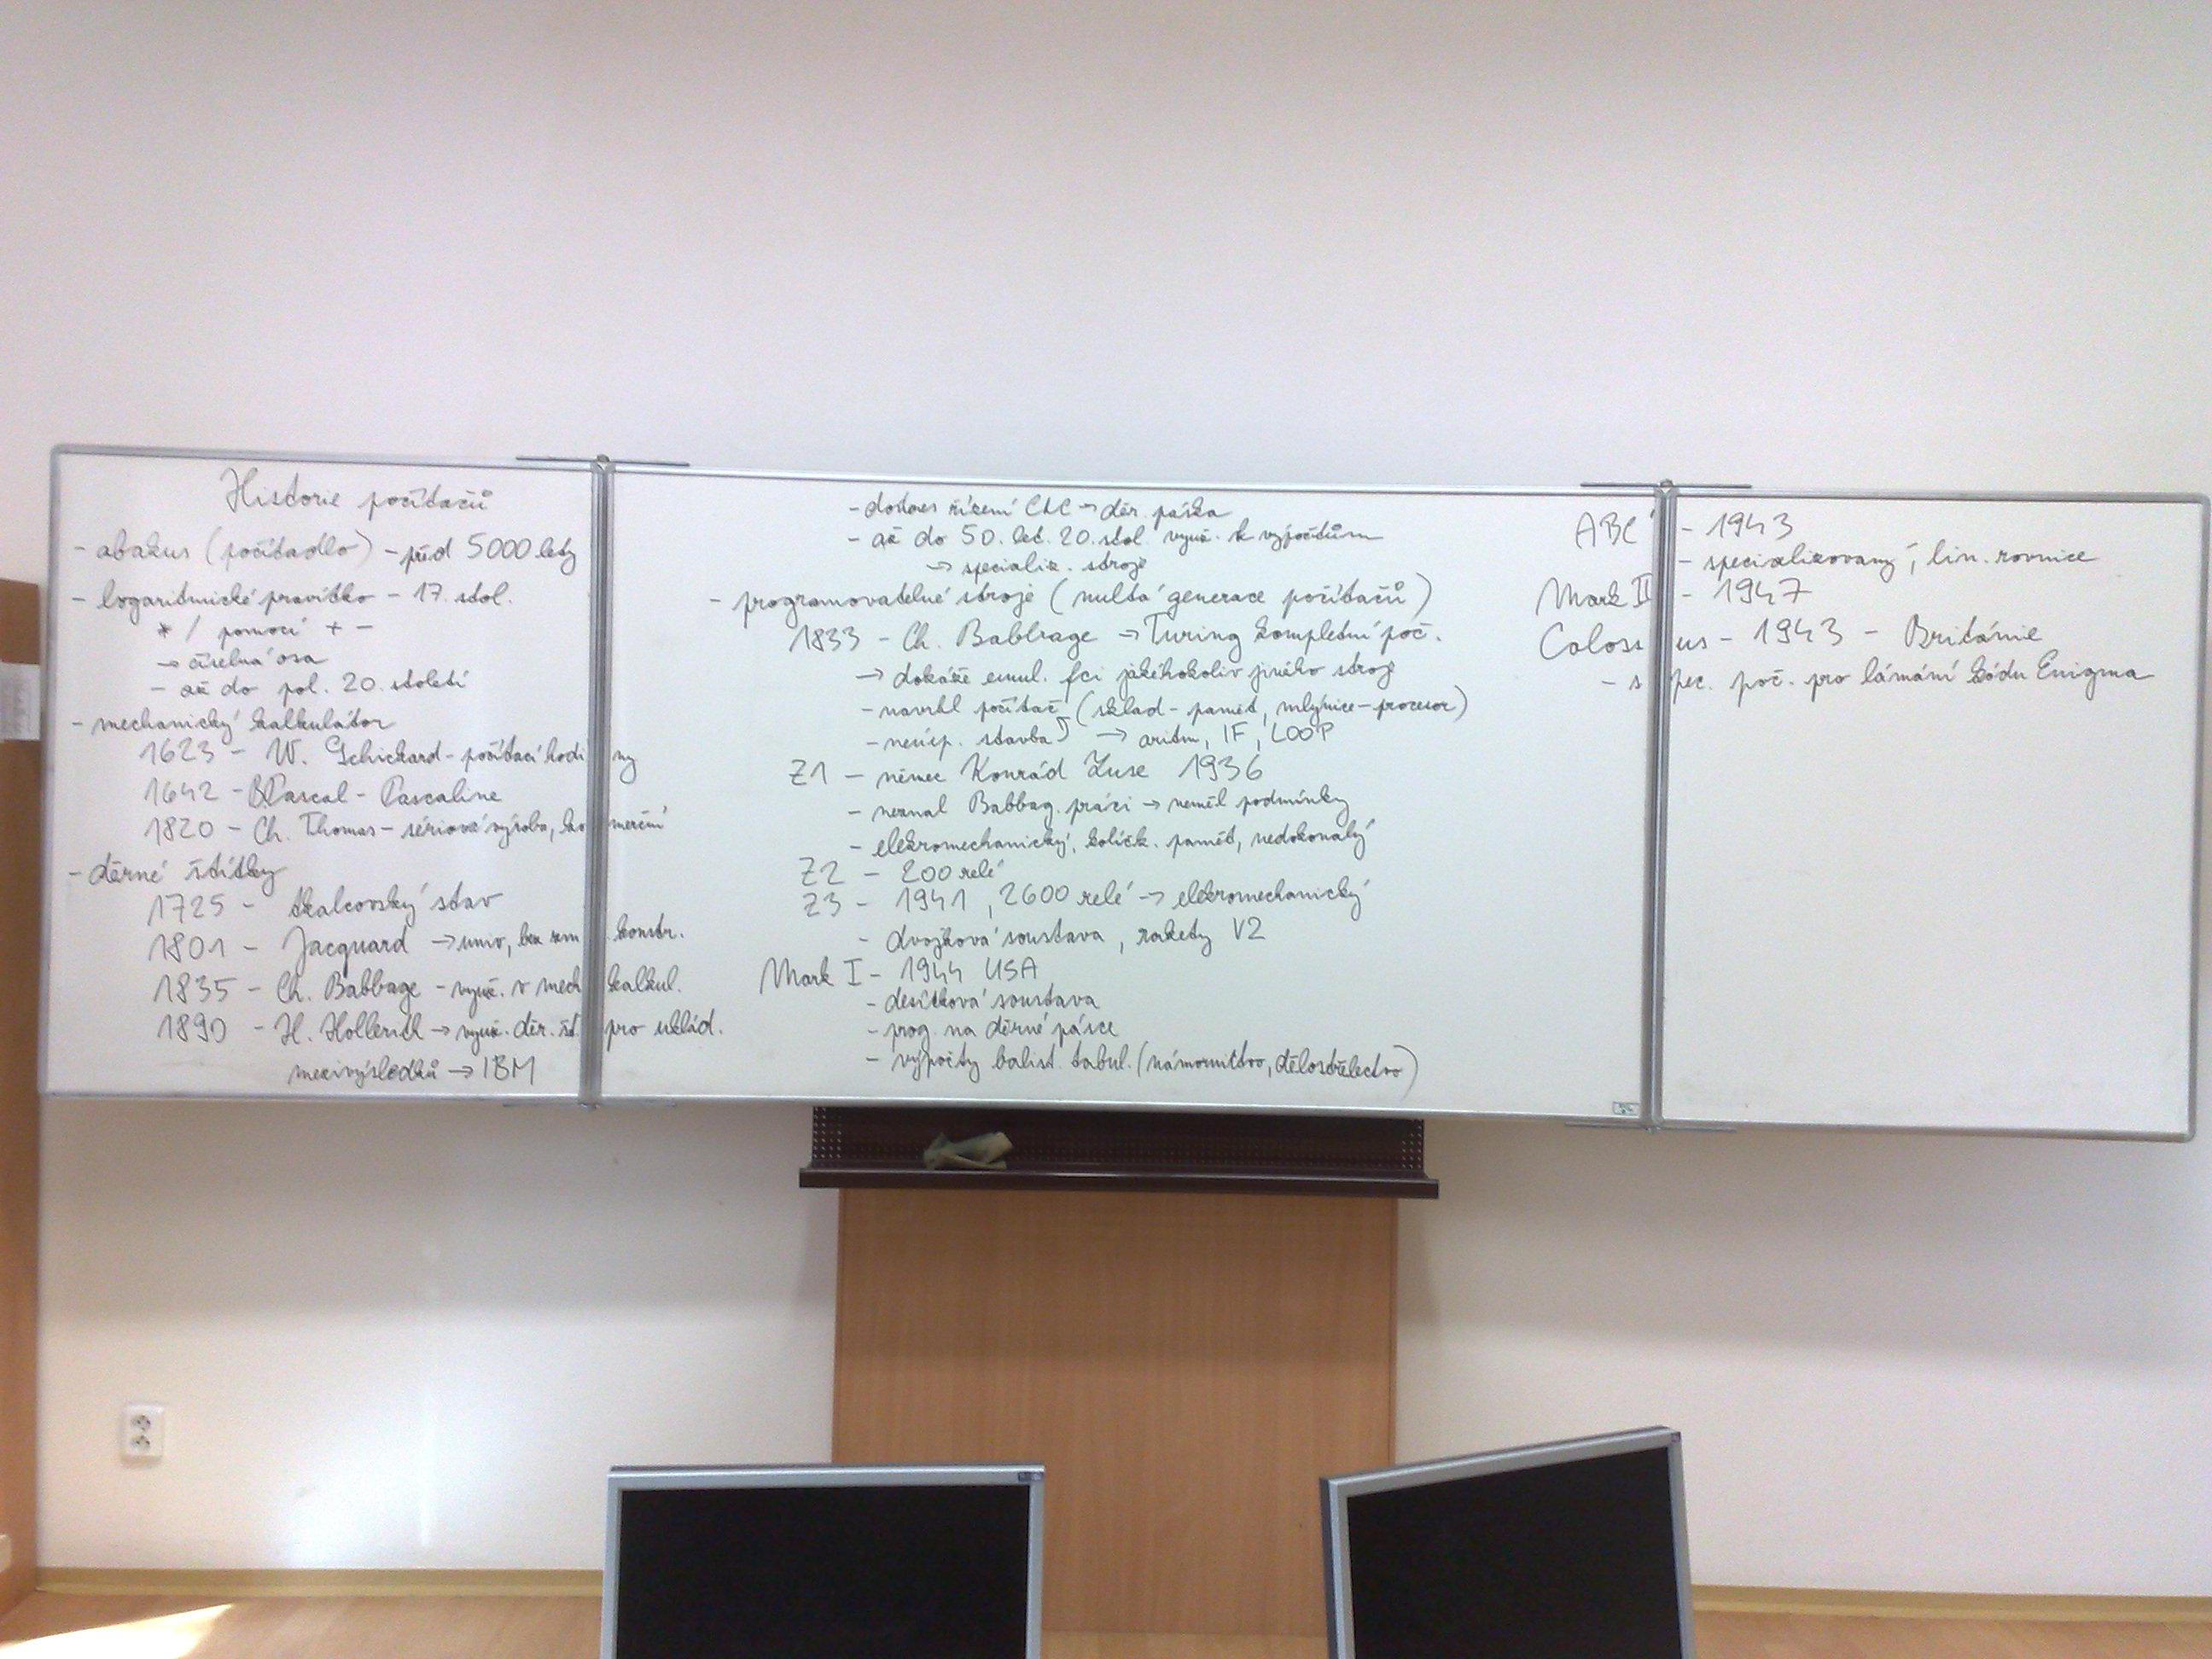 Historie počítačů
- abakus (počítadlo) - před 5000 lety
- logaritmické pravítko - 17. stol.
* / pomocí + -
→ číselná osa
- až do pol. 20. století
- mechanický kalkulátor
1623 - W. Schickard - počítací hodiny
1642 - B. Pascal - Pascaline
1820 - Ch. Thomas - sériová výroba, komerční
- děrné štítky
1725 - tkalcovský stav
1801 - Jacquard → univ, bez konstr.
1835 - Ch. Babbage - využ. v mech kalkul.
1890 - H. Hollerich → využ. děr. št. pro uklád.
mezivýsledků → IBM
- dodnes řízení CNC → děr. páska
- až do 50. let. 20. stol využ. k výpočtům
→ specializ. stroje
- programovatelné stroje (nultá generace počítačů)
1833 - Ch. Babbage → Turing kompletní poč.
→ dokáže emul. fci jakéhokoliv jiného stroje
- navrhl počítač (sklad - paměť, mlýnice - procesor)
- neúsp. stavba → aritm, IF, LOOP
Z1 - němec Konrád Zuse 1936
- neznal Babbag. práci → neměl podmínky
- elekromechanický, kolíčk. paměť, nedokonalý
Z2 - 200 relé
Z3 - 1941, 2600 relé → elekromechanický
- dvojková soustava, rakety V2
Mark I - 1944 USA
- desítková soustava
- prog. na děrné pásce
- výpočty balist. tabul. (námornictvo, dělostřelectvo)
ABC - 1943
- specializovaný, lin. rovnice
Mark II - 1947
Colossus - 1943 - Británie
- spec. poč. pro lámání kódu Enigma